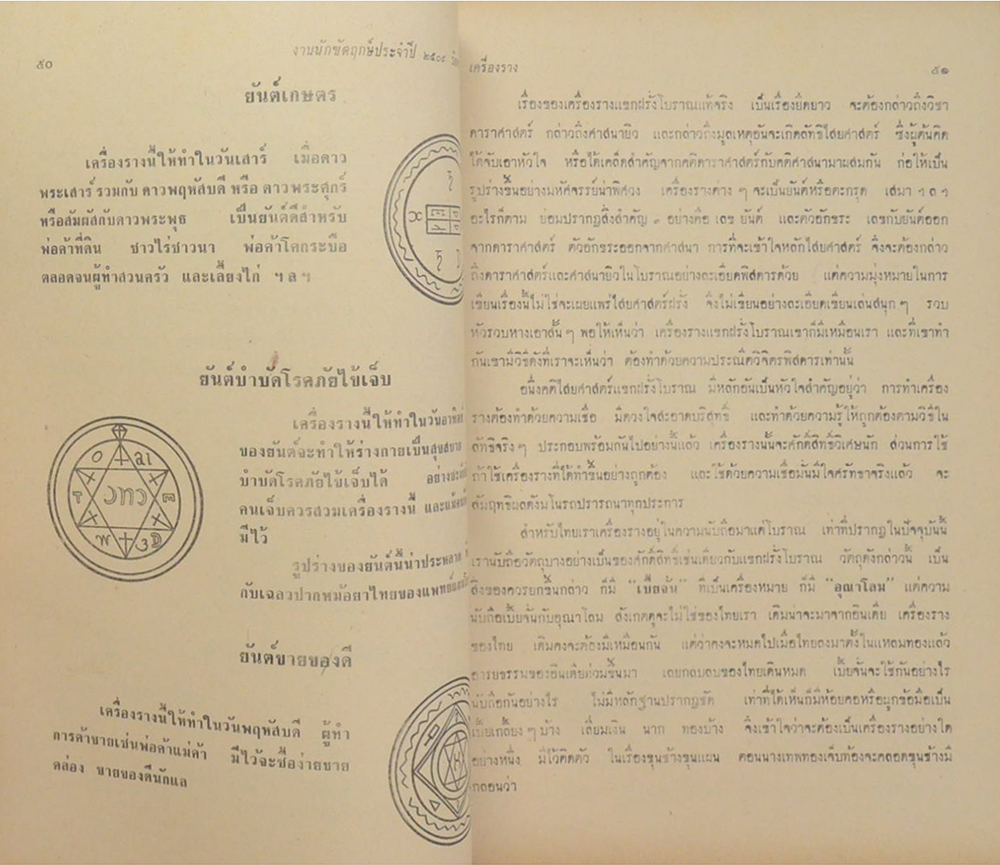 ๕๐
งานนักขัตฤกษ์ประจำปี ๒๕๐๔
ยันต์เกษตร
เครื่องรางนี้ให้ทำในวันเสาร์ เมื่อดาว
พระเสาร์ รวมกับ ดาวพฤหัสบดี หรือ ดาวพระศุกร์
หรือสัมผัสกับดาวพระพุธ เป็นยันต์ดีสำหรับ
พ่อค้าที่ดิน ชาวไร่ชาวนา พ่อค้าโคกระบือ
ตลอดจนผู้ทำสวนครัว และเลี้ยงไก่ ฯลฯ
ยันต์บำบัดโรคภัยไข้เจ็บ
เครื่องรางนี้ให้ทำในวันอาทิตย์
ของยันต์จะทำให้ร่างกายเป็นสุขสบาย
บำบัดโรคภัยไข้เจ็บได้
คนเจ็บควรสวมเครื่องรางนี้
มีไว้
รูปร่างของยันต์นี้น่าประหลาด
กับเฉลวปากหม้อยาไทยของแพทย์
ยันต์ขายของดี
เครื่องรางนี้ให้ทำในวันพฤหัสบดี ผู้ทำ
การค้าขายเช่นพ่อค้าแม่ค้า มีไว้จะซื้อง่ายขาย
คล่อง ขายของดีนักแล
เครื่องราง
๕๑
เรื่องของเครื่องรางแขกฝรั่งโบราณแท้จริง เป็นเรื่องยืดยาว จะต้องกล่าวถึงวิชา
ดาราศาสตร์ กล่าวถึงศาสนายิว และกล่าวถึงมูลเหตุอันจะเกิดลัทธิไสยศาสตร์ ซึ่งผู้ค้นคิด
ได้จับเอาหัวใจ หรือได้เคล็ดสำคัญจากคติดาราศาสตร์กับคติศาสนามาผสมกัน ก่อให้เป็น
รูปร่างขึ้นอย่างมหัศจรรย์น่าพิศวง เครื่องรางต่าง ๆ จะเป็นยันต์หรือตะกรุด เสมา ฯลฯ
อะไรก็ตาม ย่อมปรากฏสิ่งสำคัญ ๓ อย่างคือ เลข ยันต์ และตัวอักขระ เลขกับยันต์ออก
จากดาราศาสตร์ ตัวอักขระออกจากศาสนา การที่จะเข้าใจหลักไสยศาสตร์ จึงจะต้องกล่าว
ถึงดาราศาสตร์และศาสนายิวในโบราณอย่างละเอียดพิสดารด้วย แต่ความมุ่งหมายในการ
เขียนเรื่องนี้ไม่ใช่จะเผยแพร่ไสยศาสตร์ฝรั่ง จึงไม่เขียนอย่างละเอียดเขียนเล่นสนุก ๆ รวบ
หัวรวบหางเอาสั้น ๆ พอให้เห็นว่า เครื่องรางแขกฝรั่งโบราณเขาก็มีเหมือนเรา และที่เขาทำ
กันเขามีวิธีดังที่เราจะเห็นว่า ต้องทำด้วยความประณีตวิจิตรพิสดารเท่านั้น
อนึ่งคติไสยศาสตร์แขกฝรั่งโบราณ มีหลักอันเป็นหัวใจสำคัญอยู่ว่า การทำเครื่อง
รางต้องทำด้วยความเชื่อ มีดวงใจสะอาดบริสุทธิ์ และทำด้วยความรู้ให้ถูกต้องตามวิธีใน
ลัทธิจริงๆ ประกอบพร้อมกันไปอย่างนี้แล้ว เครื่องรางนั้นจะศักดิ์สิทธิ์วิเศษนัก ส่วนการใช้
ถ้าใช้เครื่องรางที่ได้ทำขึ้นอย่างถูกต้อง และใช้ด้วยความเชื่อมั่นมีใจศรัทธาจริงแล้ว จะ
สัมฤทธิ์ผลดังมโนรถปรารถนาทุกประการ
สำหรับไทยเราเครื่องรางอยู่ในความนับถือมาแต่โบราณ เท่าที่ปรากฏในปัจจุบันนี้
เรานับถือวัตถุบางอย่างเป็นของศักดิ์สิทธิ์เช่นเดียวกับแขกฝรั่งโบราณ วัตถุดังกล่าวนี้ เป็น
สิ่งของควรยกขึ้นกล่าว ก็มี “เบี้ยจั่น” ที่เป็นเครื่องหมาย ก็มี “อุณาโลม” แต่ความ
นับถือเบี้ยจั่นกับอุณาโลม สังเกตดูจะไม่ใช่ของไทยเรา เดิมน่าจะมาจากอินเดีย เครื่องราง
ของไทย เดิมคงจะต้องมีเหมือนกัน แต่ว่าคงจะหมดไปเมื่อไทยลงมาตั้งในแหลมทองแล้ว
อารยธรรมของอินเดียท่วมขึ้นมา เลยกลบลบของไทยเดิมหมด เบี้ยจั่นจะใช้กันอย่างไร
นับถือกันอย่างไร ไม่มีหลักฐานปรากฏชัด เท่าที่ได้เห็นก็มีห้อยคอหรือผูกข้อมือเป็น
เบี้ยเกลี้ยง ๆ บ้าง เลี่ยมเงิน นาก ทองบ้าง จึงเข้าใจว่าจะต้องเป็นเครื่องรางอย่างใด
อย่างหนึ่ง มีไว้ติดตัว ในเรื่องขุนช้างขุนแผน ตอนนางเทพทองเจ็บท้องจะคลอดขุนช้างมี
กลอนว่า